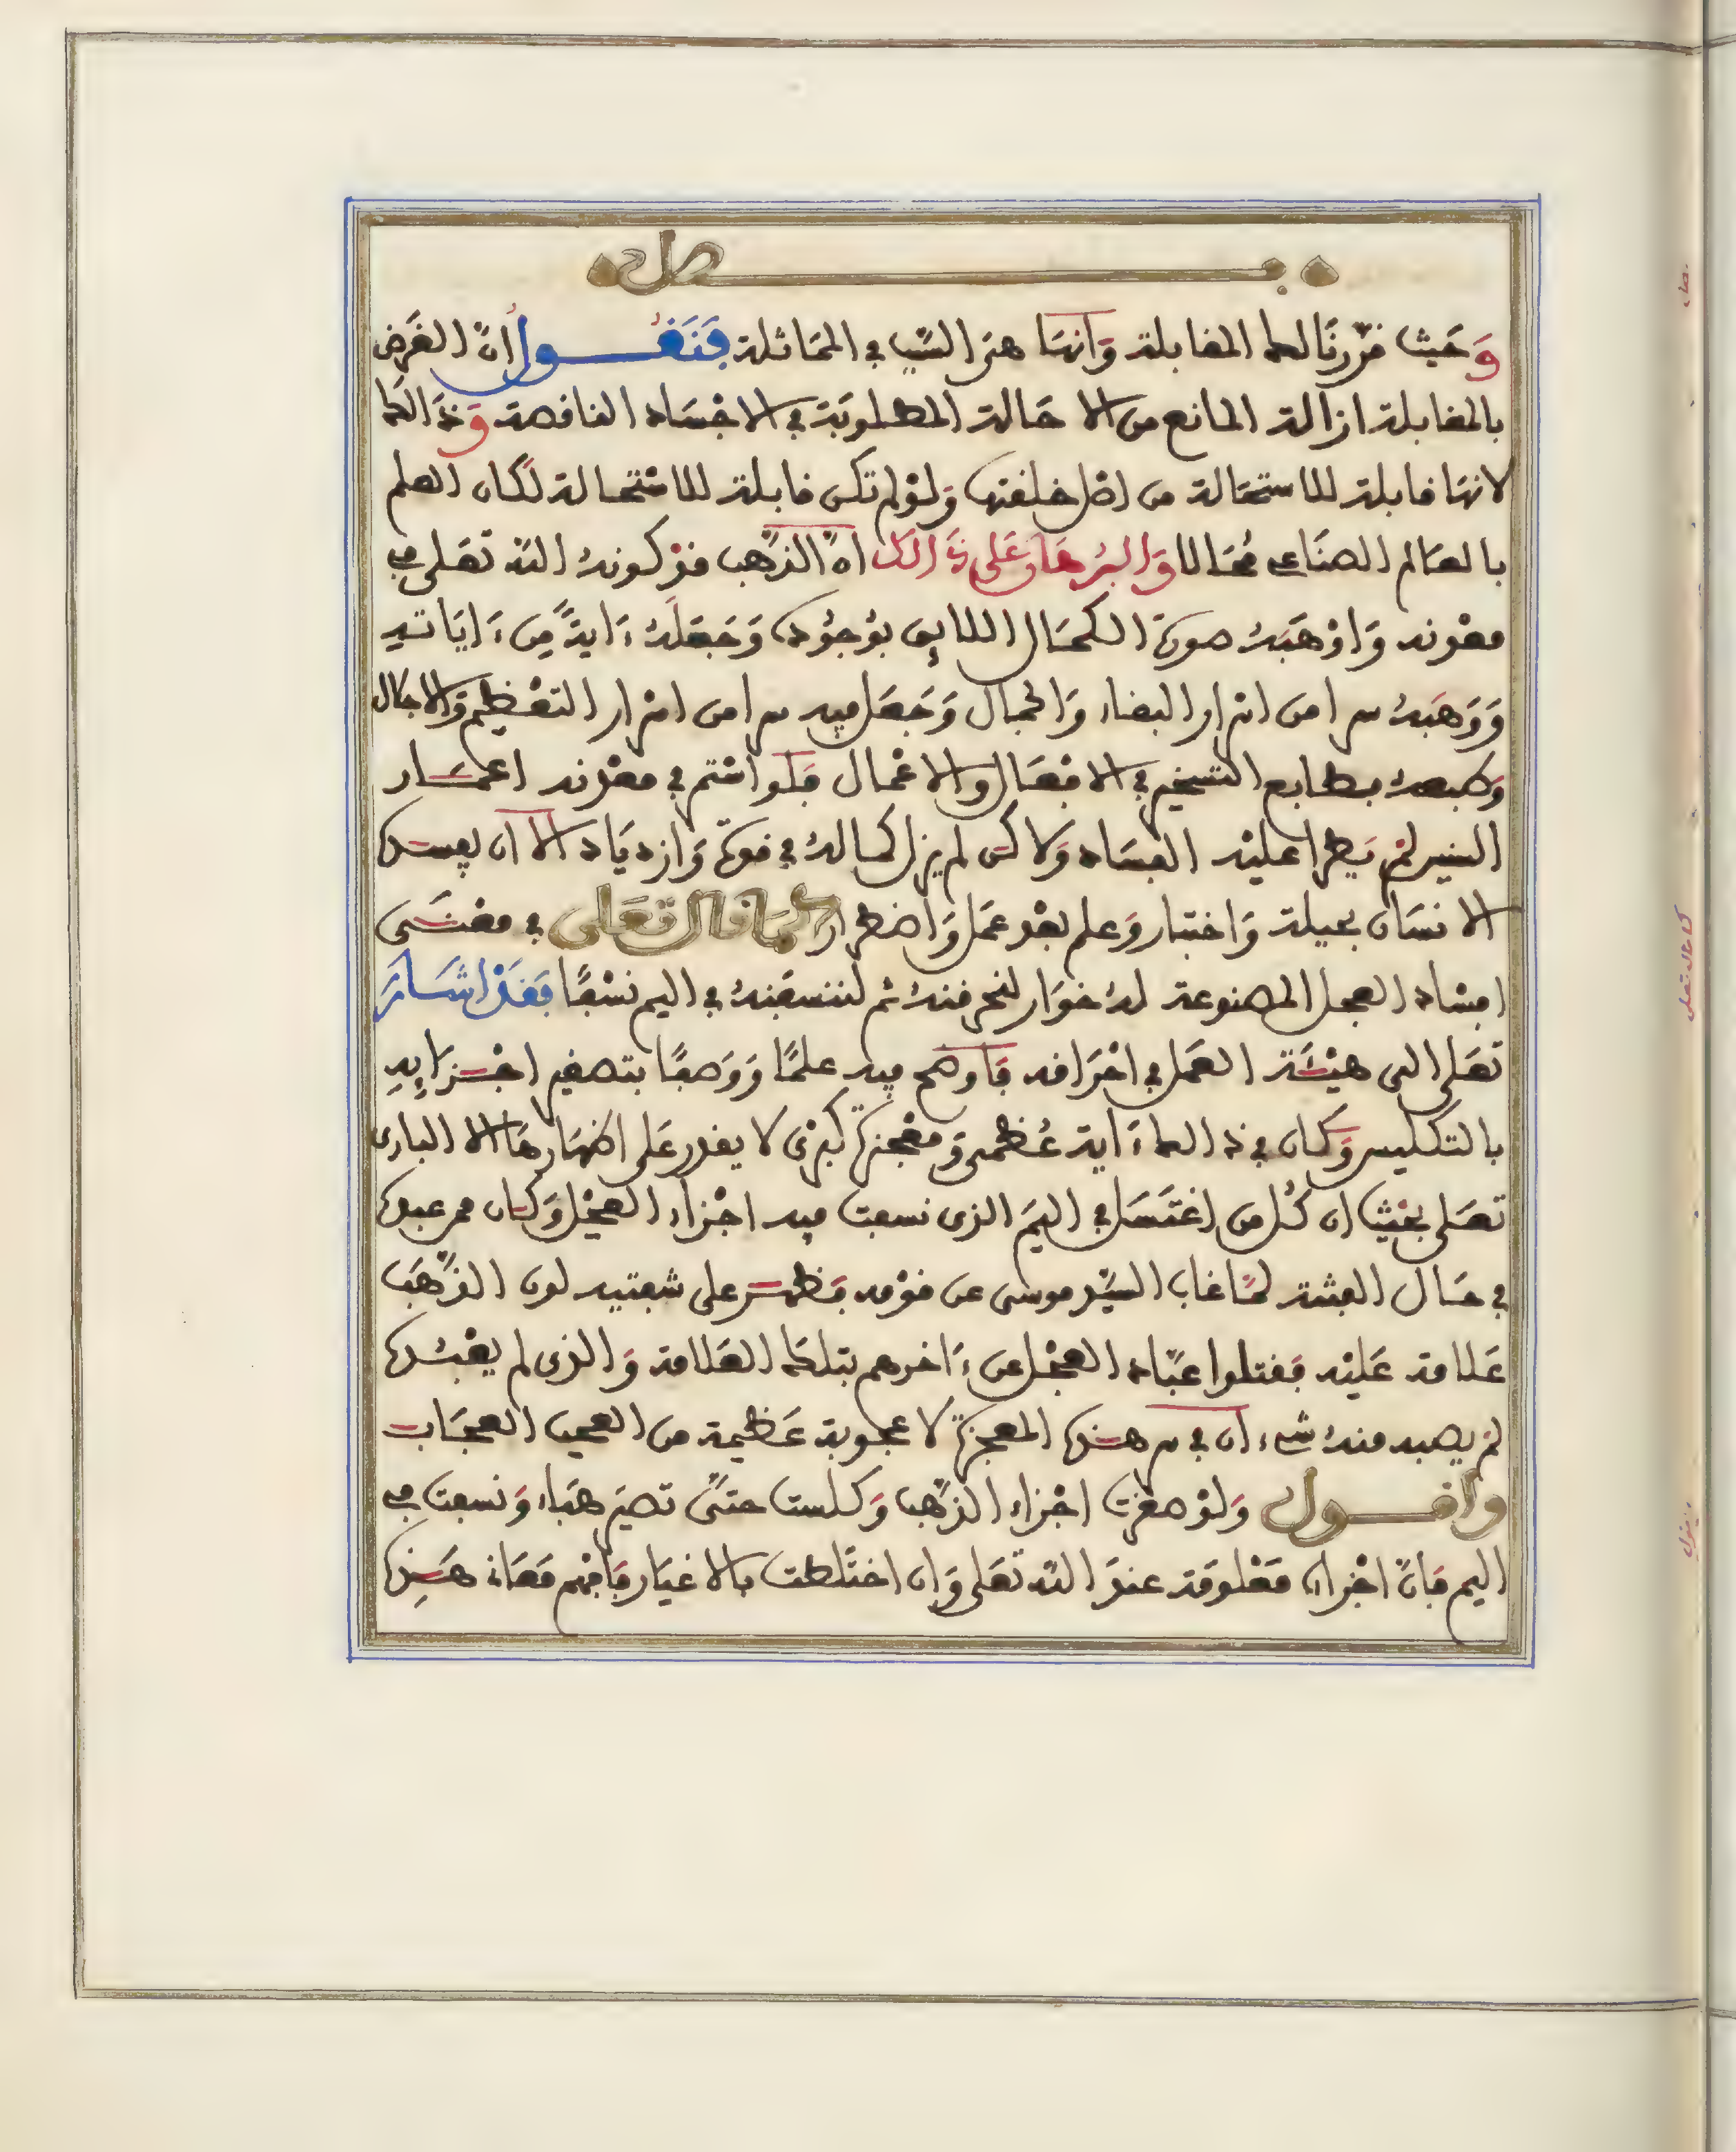 فصل
وَحَيث قرّرنَا لك المقابلة وَانهَا هى السّبب في المماثلة فَنَقُول أنّ الغَرض
بالمقابلة ازالة المانع من الاحَالة المطلوبَة في الاجْسَاد الناقصة وَذَالك
لانهَا قابلة للاستحَالة من اصْل خلقتها وَلوْ لم تكن قابلة للاسْتحالة لكَان العلم
بالعَالم الصنَاعي مُحَالا وَالبُرهَان عَلى ذَالك انّ الذّهب قدْ كونهُ الله تعَلى في
معْدنه وَاوْهَبَهُ صورة الكمَال اللايق بوُجوُده وَجَعَلَهُ ءَايةً مِن ءَايَاته
وَوَهَبَهُ سرا من اسْرار البقاء وَالجمال وَجَعَل فيه سرا من اسْرار التعْظيم وَالاجلال
وَطبعهُ بطابع التسخير في الافعَال والاعْمال فَلَو استم في معْدنه اعمَار
السنين لمْ يَطرا عليْه الفسَاد وَلاكن لم يزل كماله في قوة وَازديَاد الا ان يفسده
الانسَان بحيلة وَاختبار وَعلم بعْد عمَل وَاضطرار كمَا قال تعَلى في معْنَى
افسْاد العجل المصنوعة لهُ خوَار لنحرقنهُ ثم لننسفَنهُ في اليم نسْفًا فَقَدْ اشَارَ
تعَلى الى هيْئَة العمَل في احْرَاقه فَاوهم فيه علمًا وَوَصفًا بتصغير اجْزَايِهِ
بالتكليس وَكان في ذالك ءَاية عُظمى وَمعْجزة كبرْى لا يقدر عَلى اظهَارهَا الا البارى
تعَلى بحَيْث ان كُل من اغتَسَل في اليَمّ الذى نسفت فيه اجْزاء العجْل وَكان ممن عبده
في حَال الفتْنة لمّا غابَ السّيد موسَى عن قوْمه فَظهر على شفتيه لون الذّهَب
عَلامة عَليْه فقتلوا عبّاد العجْل عن ءَاخرهم بتلك العَلامة وَالذى لم يعْبده
لمْ يصبه منهُ شيء ان في سر هذه المعجزة لاعجوبة عَظيمة من العجب العجَاب
واقول وَلوْ صغرت اجْزاء الذّهب وَكلست حتّى تصيَر هبَاء وَنسفت في
اليم فَانّ اجْزاه مَعْلومَة عندَ الله تعَلى وَان اختَلطت بالاغيَار فَافهم مَعَانى هَذِه